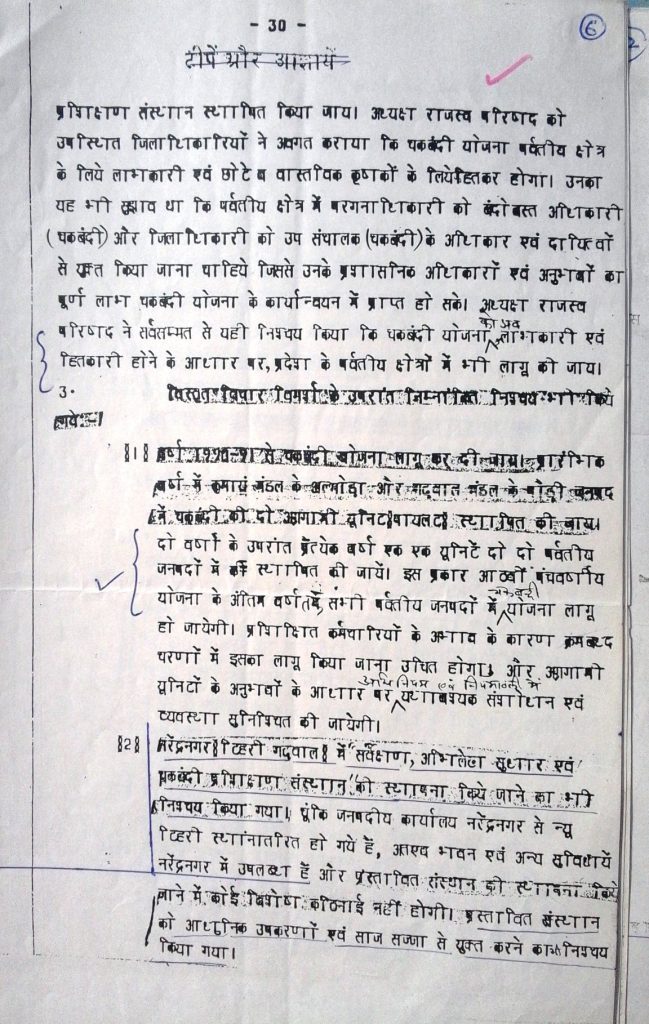 - 30 -
6
2
टीपें और आज्ञायें
प्रशिक्षण संस्थान स्थापित किया जाय। अध्यक्ष राजस्व परिषद को
उपस्थित जिलाधिकारियों ने अवगत कराया कि चकबंदी योजना पर्वतीय क्षेत्र
के लिये लाभकारी एवं छोटे व वास्तविक कृषकों के लिये हितकर होगा। उनका
यह भी सुझाव था कि पर्वतीय क्षेत्र में परगनाधिकारी को बंदोबस्त अधिकारी
(चकबंदी) और जिलाधिकारी को उप संचालक (चकबंदी) के अधिकार एवं दायित्वों
से युक्त किया जाना चाहिये जिससे उनके प्रशासनिक अधिकारों एवं अनुभावों का
पूर्ण लाभ चकबंदी योजना के कार्यान्वयन में प्राप्त हो सके। अध्यक्ष राजस्व
परिषद ने सर्वसम्मत से यही निश्चय किया कि चकबंदी योजना लाभकारी एवं
हितकारी होने के आधार पर, प्रदेश के पर्वतीय क्षेत्रों में भी लागू की जाय।
3. विस्तृत विचार विमर्श के उपरांत निम्नांकित निश्चय भी किये
गये:-
§1§ वर्ष 1990-91 से चकबंदी योजना लागू कर दी जाय। प्रारंभिक
वर्ष में कुमायूं मंडल के अल्मोड़ा और गढ़वाल मंडल के पौड़ी जनपद
में चकबंदी की दो अग्रगामी यूनिट§पायलट§ स्थापित की जाय।
दो वर्षों के उपरांत प्रत्येक वर्ष एक एक यूनिटें दो दो पर्वतीय
जनपदों में स्थापित की जायें। इस प्रकार आठवीं पंचवर्षीय
चकबन्दी
योजना के अंतिम वर्ष तक सभी पर्वतीय जनपदों में योजना लागू
हो जायेगी। प्रशिक्षित कर्मचारियों के अभाव के कारण क्रमबध्द
चरणों में इसका लागू किया जाना उचित होगा, और अग्रगामी
अधिनियम एवं नियमावली में
यूनिटों के अनुभावों के आधार पर यथावश्यक संशोधन एवं
व्यवस्था सुनिश्चित की जायेगी।
§2§ नरेंद्रनगर§टिहरी गढ़वाल§ में "सर्वेक्षण, अभिलेख सुधार एवं
चकबंदी प्रशिक्षण संस्थान" की स्थापना किये जाने का भी
निश्चय किया गया। चूंकि जनपदीय कार्यालय नरेंद्रनगर से न्यू
टिहरी स्थानांतरित हो गये हैं, अतएव भवन एवं अन्य सुविधायें
नरेंद्रनगर में उपलब्ध हैं और प्रस्तावित संस्थान की स्थापना किये
जाने में कोई विशेष कठिनाई नहीं होगी। प्रस्तावित संस्थान
को आधुनिक उपकरणों एवं साज सज्जा से युक्त करने का निश्चय
किया गया।